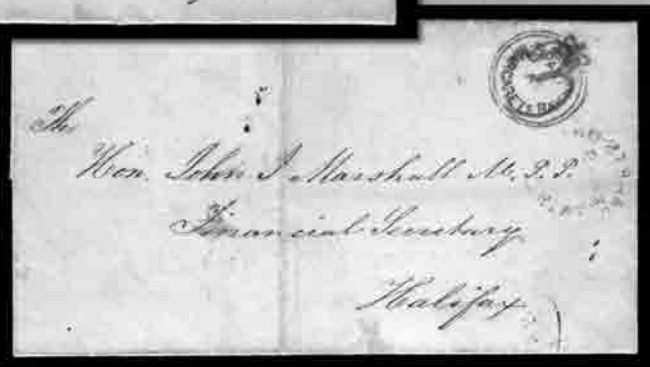 The
Hon. John J Marshall M.P.P.
Financial Secretary
Halifax